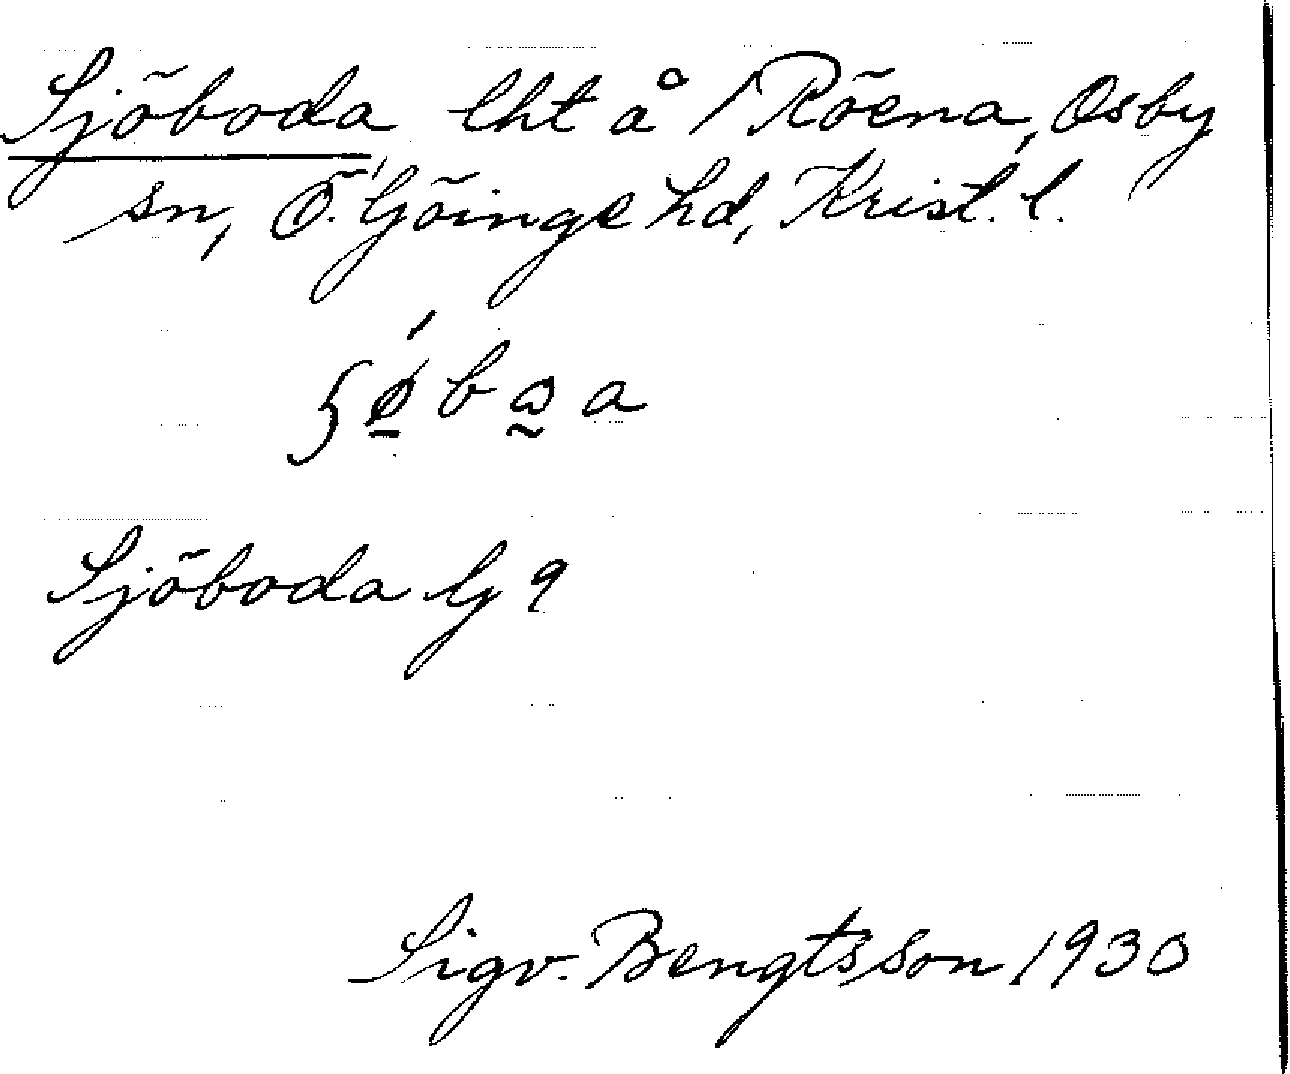 Sjöboda, lht å 1 Röena, Osby
sn, Ö. Göinge hd, Krist. l.
Sjöboda G 9
Sigv. Bengtsson 1930